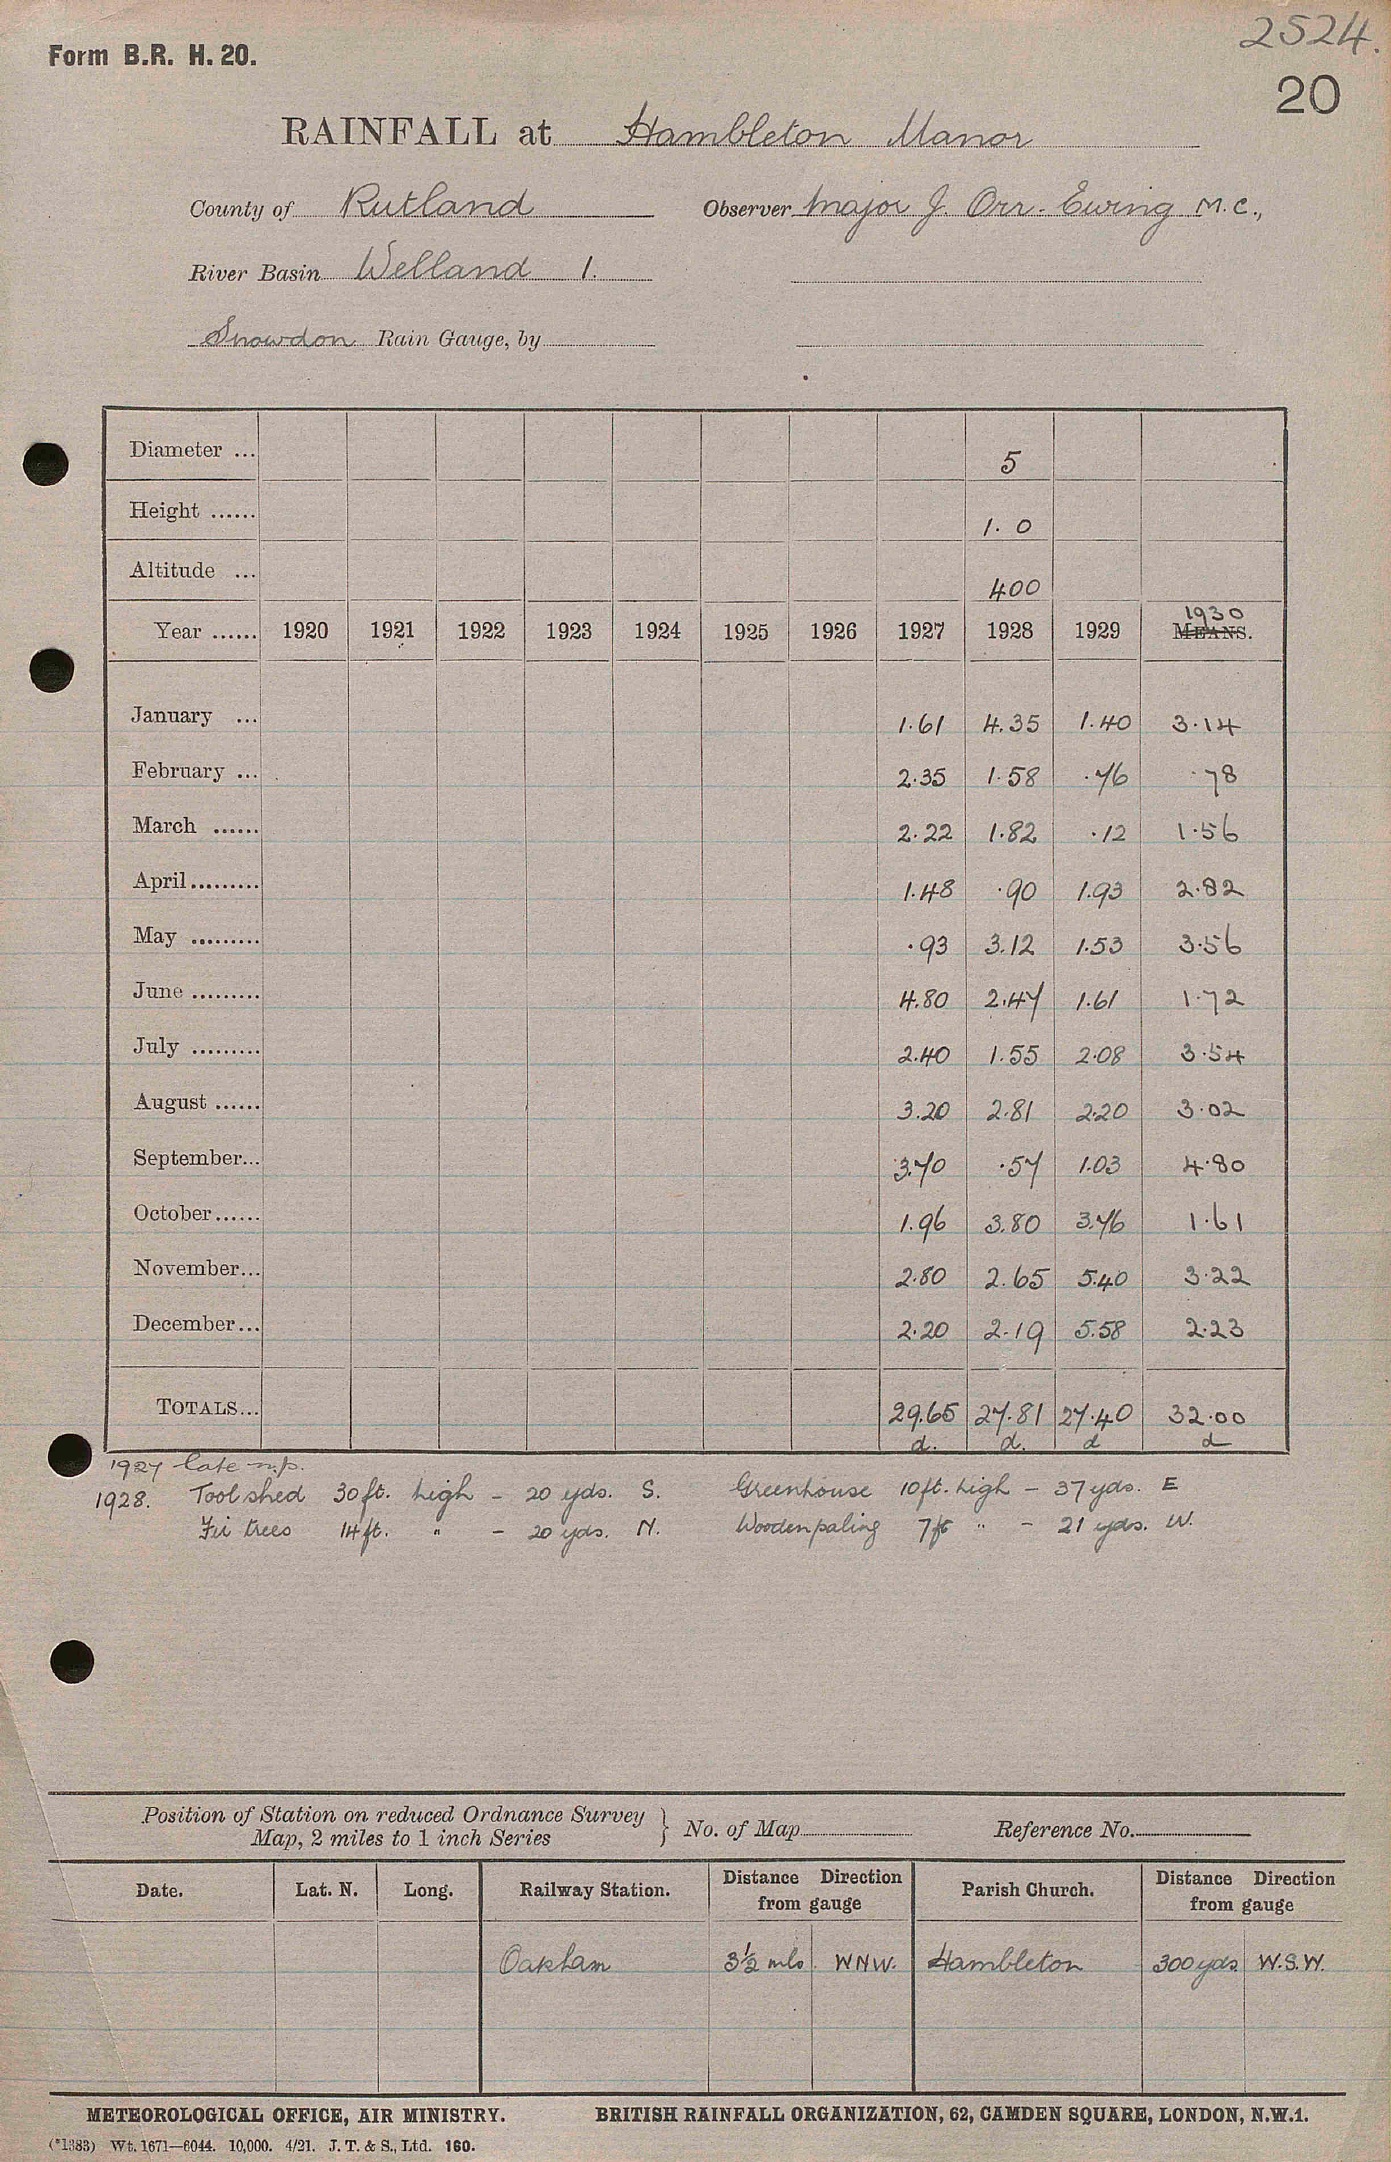 2524.
Form B.R. H. 20.
20
RAINFALL at Hambleton Manor
County of Rutland Observer Major J. Orr-Ewing M.C.,
River Basin Welland 1.
Snowdon Rain Gauge, by
Diameter ... 5
Height ...... 1.0
Altitude ... 400
Year ...... 1920 1921 1922 1923 1924 1925 1926 1927 1928 1929 1930 MEANS.
January ... 1.61 4.35 1.40 3.14
February ... 2.35 1.58 .76 .78
March ...... 2.22 1.82 .12 1.56
April ......... 1.48 .90 1.93 2.82
May ......... .93 3.12 1.53 3.56
June ......... 4.80 2.47 1.61 1.72
July ......... 2.40 1.55 2.08 3.54
August ...... 3.20 2.81 2.20 3.02
September... 3.70 .57 1.03 4.80
October...... 1.96 3.80 3.76 1.61
November... 2.80 2.65 5.40 3.22
December... 2.20 2.19 5.58 2.23
TOTALS... 29.65 27.81 27.40 32.00
d. d. d d
1927 late n.p.
1928. Tool shed 30ft. high - 20 yds. S. Greenhouse 10ft. high - 37 yds. E
Fir trees 14ft. " - 20 yds. N. Wooden paling 7ft " - 21 yds. W.
Position of Station on reduced Ordnance Survey
Map, 2 miles to 1 inch Series } No. of Map Reference No.
Date. Lat. N. Long. Railway Station. Distance Direction from gauge Parish Church. Distance Direction from gauge
Oakham 3½ mls WNW. Hambleton 300 yds W.S.W.
METEOROLOGICAL OFFICE, AIR MINISTRY. BRITISH RAINFALL ORGANIZATION, 62, CAMDEN SQUARE, LONDON, N.W.1.
(*1383) Wt. 1671—6044. 10,000. 4/21. J. T. & S., Ltd. 160.